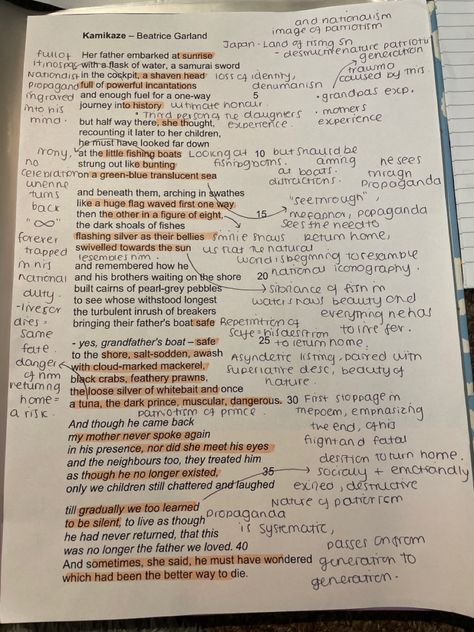 and nationalism
image of patriotism
Kamikaze – Beatrice Garland
Japan - Land of rising sn
Her father embarked at sunrise
with a flask of water, a samurai sword
in the cockpit, a shaven head
full of powerful incantations
and enough fuel for a one-way 5
journey into history
full of
Nationalism
propaganda
ingraved
into his
mind.
loss of identity,
generation
trauma
caused by this.
• grandpas exp.
• mothers
experience
ultimate honour.
• Third person, the daughters
experience.
but half way there, she thought,
recounting it later to her children,
he must have looked far down
at the little fishing boats 10
strung out like bunting
on a green-blue translucent sea
irony,
no
celebration
when he
turns
back
Looking at
fishing boats.
but should be
aiming
at boats.
distractions.
he sees
through
propaganda
"see through"
and beneath them, arching in swathes
like a huge flag waved first one way
then the other in a figure of eight, 15
the dark shoals of fishes
flashing silver as their bellies
swivelled towards the sun
"∞"
forever
trapped
in his
national
duty.
-lives or
dies =
same
fate.
metaphor, popaganda
sees the need to
return home,
simile shows
us that the natural
world is beginning to resemble
national iconography.
resembles him
and remembered how he
and his brothers waiting on the shore 20
built cairns of pearl-grey pebbles
to see whose withstood longest
the turbulent inrush of breakers
bringing their father's boat safe
sibilance of fish in
water shows beauty and
everything he has
to live for.
Repetition of
safe = his desition
to return home.
- yes, grandfather's boat – safe 25
to the shore, salt-sodden, awash
with cloud-marked mackerel,
black crabs, feathery prawns,
the loose silver of whitebait and once
a tuna, the dark prince, muscular, dangerous. 30
danger
of him
returning
home =
a risk.
Asyndetic listing, paired with
superlative desc, beauty of
nature.
patriotism of prince.
First stoppage in
the poem, emphasizing
the end, of his
flight and fatal
desition to turn home.
And though he came back
my mother never spoke again
in his presence, nor did she meet his eyes
and the neighbours too, they treated him
as though he no longer existed, 35
only we children still chattered and laughed
socially + emotionally
exiled, destructive
nature of patriotism
till gradually we too learned
to be silent, to live as though
he had never returned, that this
was no longer the father we loved. 40
And sometimes, she said, he must have wondered
which had been the better way to die.
propaganda
is systematic,
passes on from
generation to
generation.